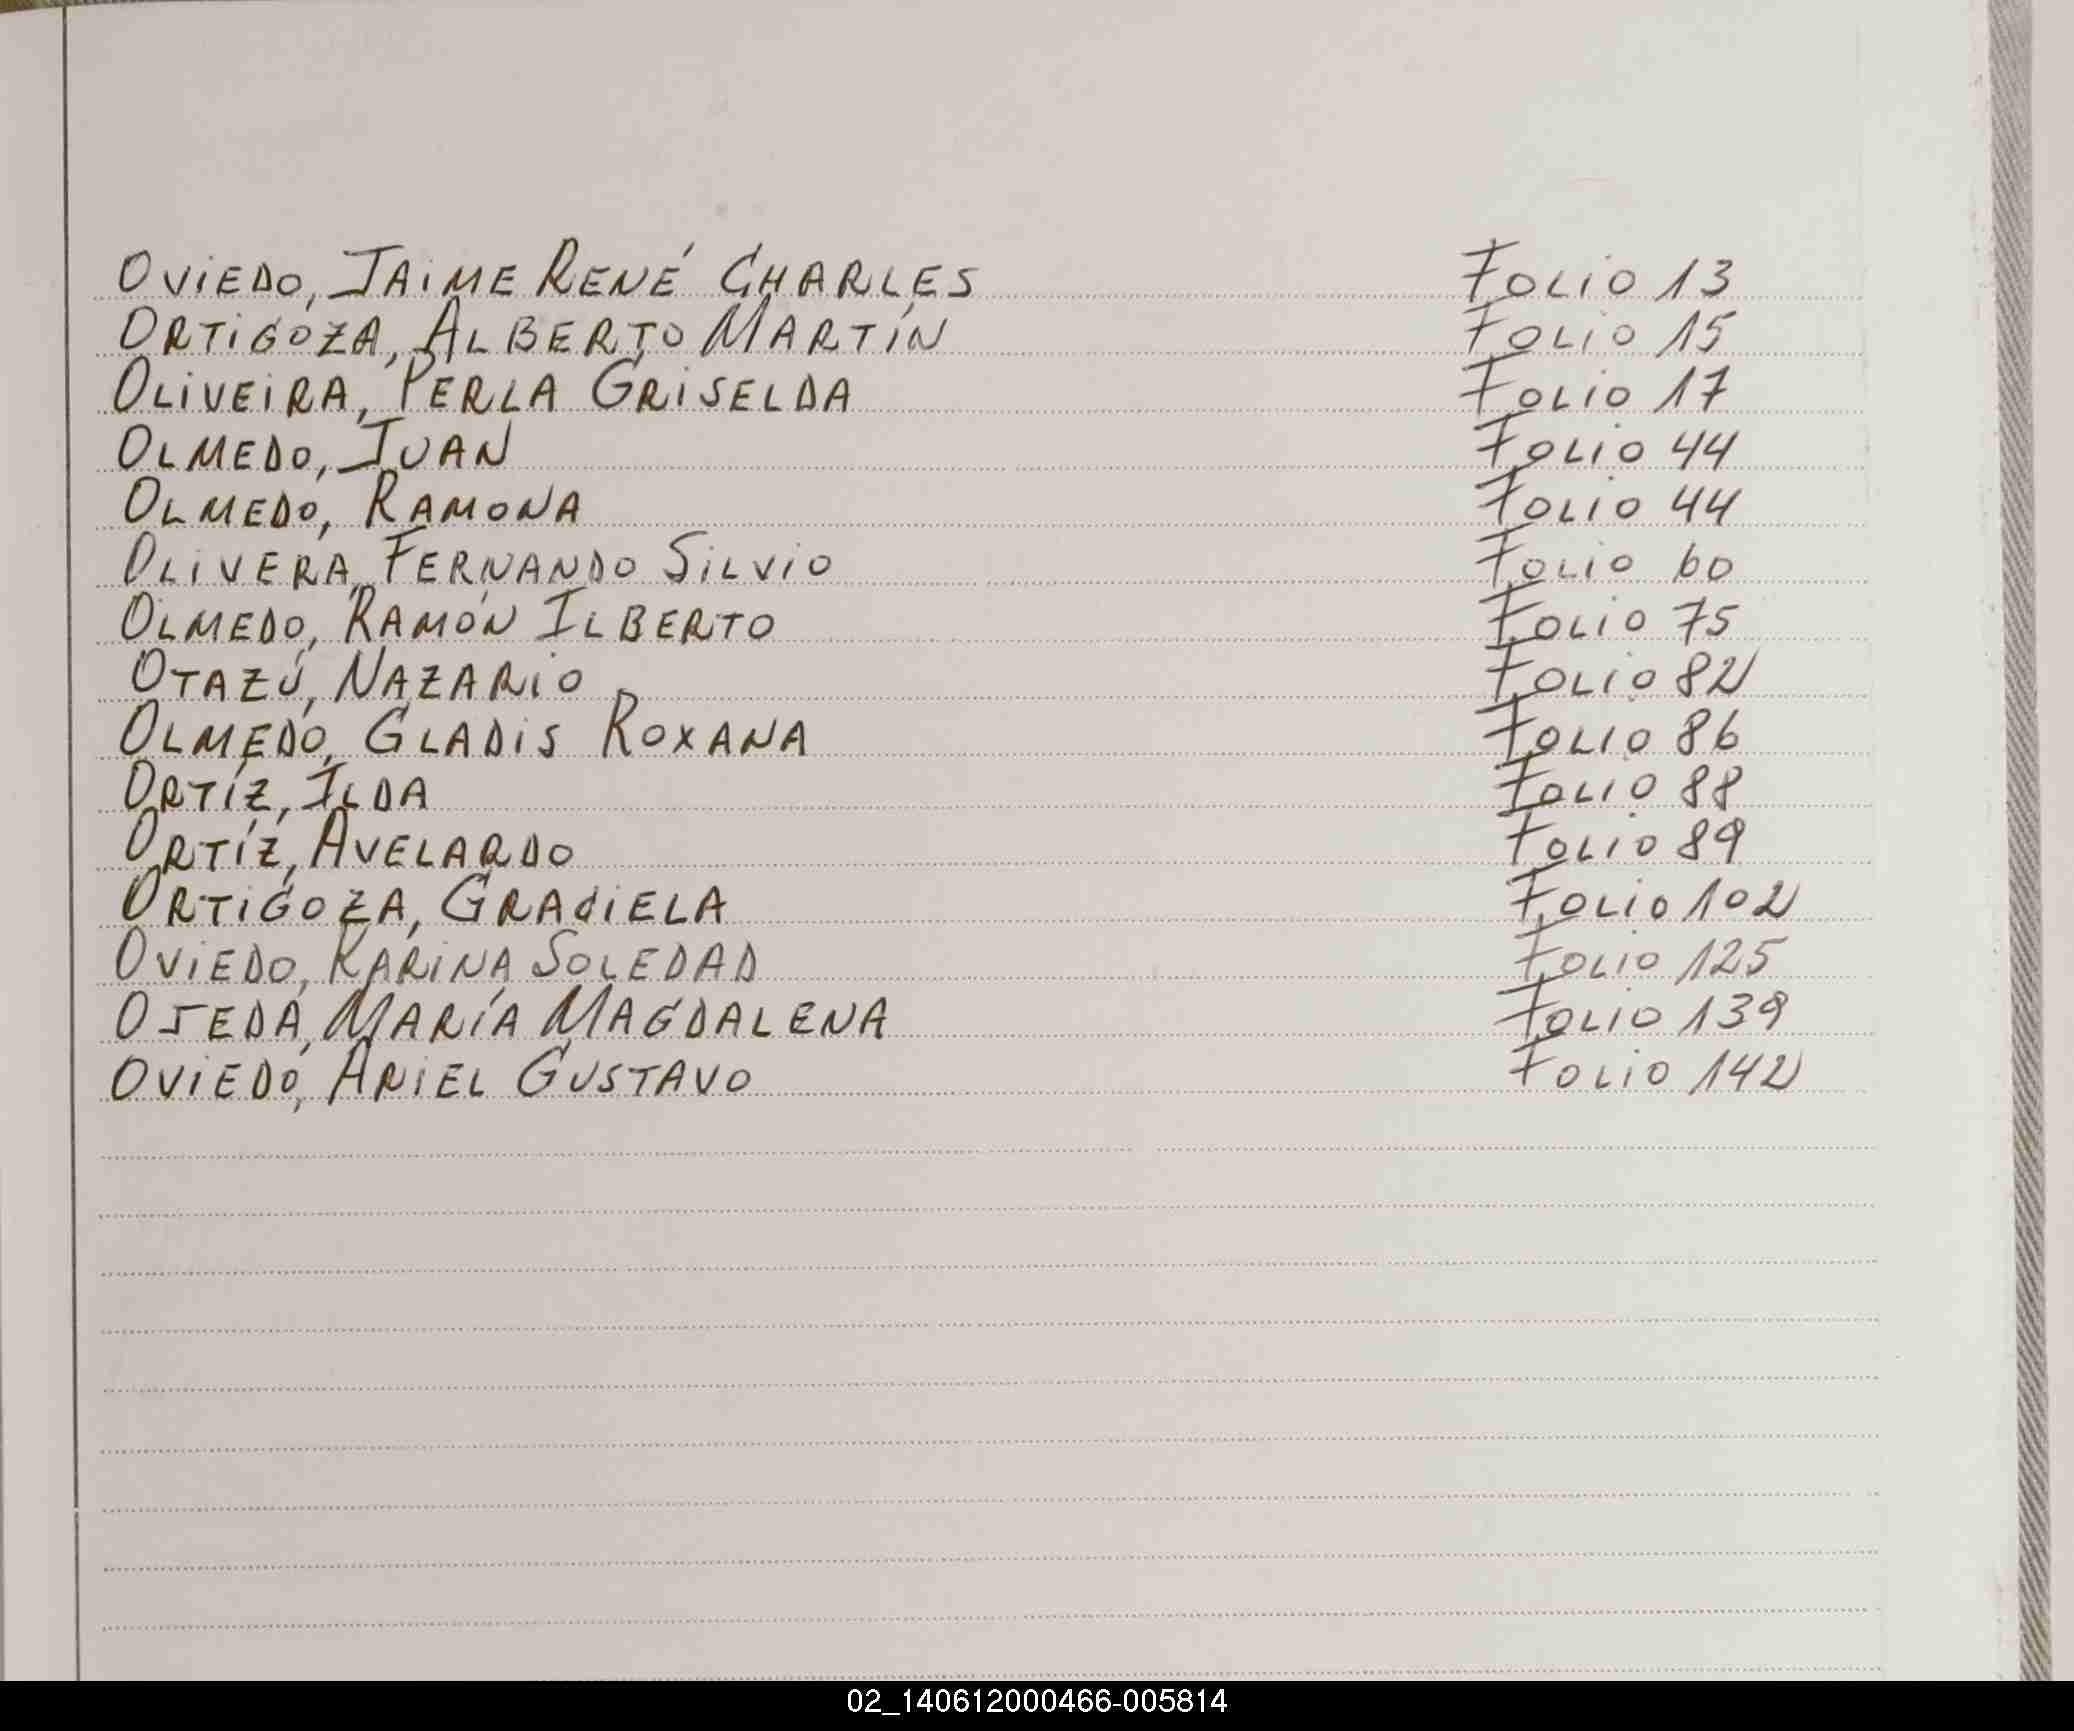 OVIEDO, JAIME RENÉ CHARLES FOLIO 13
ORTIGOZA, ALBERTO MARTÍN FOLIO 15
OLIVEIRA, PERLA GRISELDA FOLIO 17
OLMEDO, JUAN FOLIO 44
OLMEDO, RAMONA FOLIO 44
OLIVERA, FERNANDO SILVIO FOLIO 60
OLMEDO, RAMÓN ILBERTO FOLIO 75
OTAZÚ, NAZARIO FOLIO 82
OLMEDO, GLADIS ROXANA FOLIO 86
ORTÍZ, ILDA FOLIO 88
ORTÍZ, AVELARDO FOLIO 89
ORTIGOZA, GRACIELA FOLIO 102
OVIEDO, KARINA SOLEDAD FOLIO 125
OJEDA, MARÍA MAGDALENA FOLIO 139
OVIEDO, ARIEL GUSTAVO FOLIO 142
02_140612000466-005814